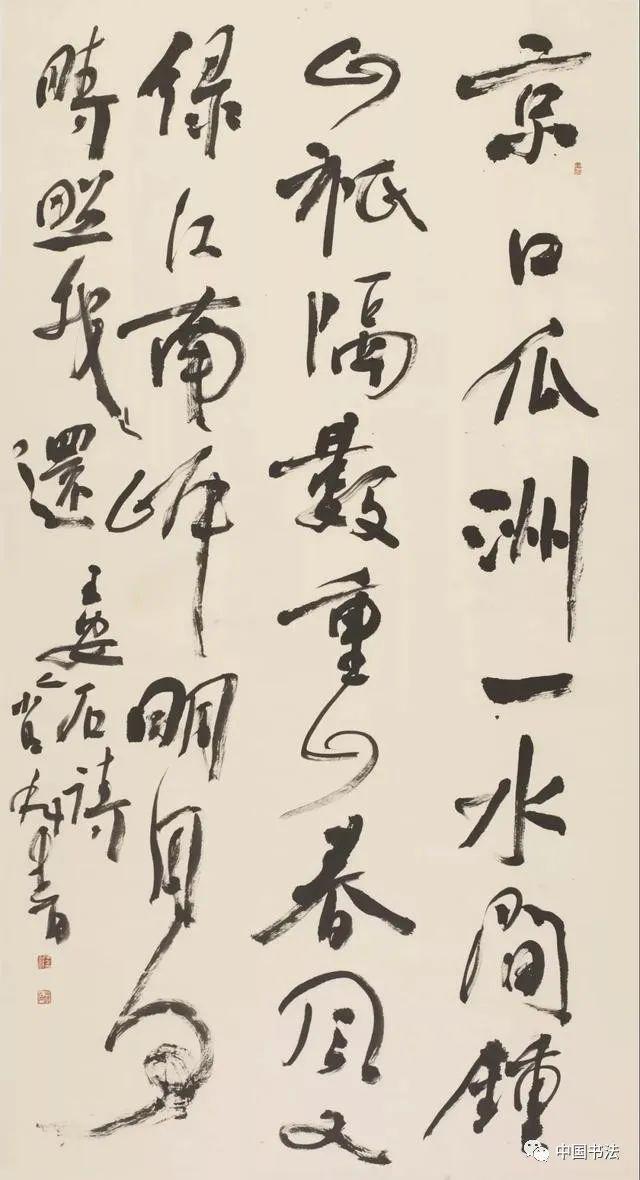 京口瓜洲一水間鍾
山祇隔數重山春風又
綠江南岸明月何
時照我還
王安石詩
中国书法